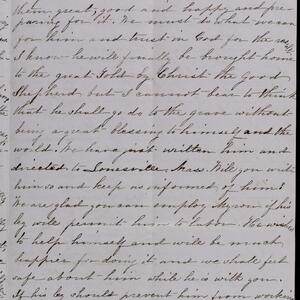 them great, good and happy and pre-
paring for it. We must do what we can
for him and trust in God for the rest
I know he will finally be brought home
to the great Fold by Christ the Good
Shepherd but I cannot bear to think
that he shall go to the grave without
being a great blessing to himself and the
world. We have just written him and
directed to Mass. Will you write
him so and keep us informed of him?
We are glad you can employ Myron if his
leg will permit him to labor. He wants
to help himself and will be much
happier for doing it and we shall feel
safe about him while he is with you.
If his leg should prevent him from working